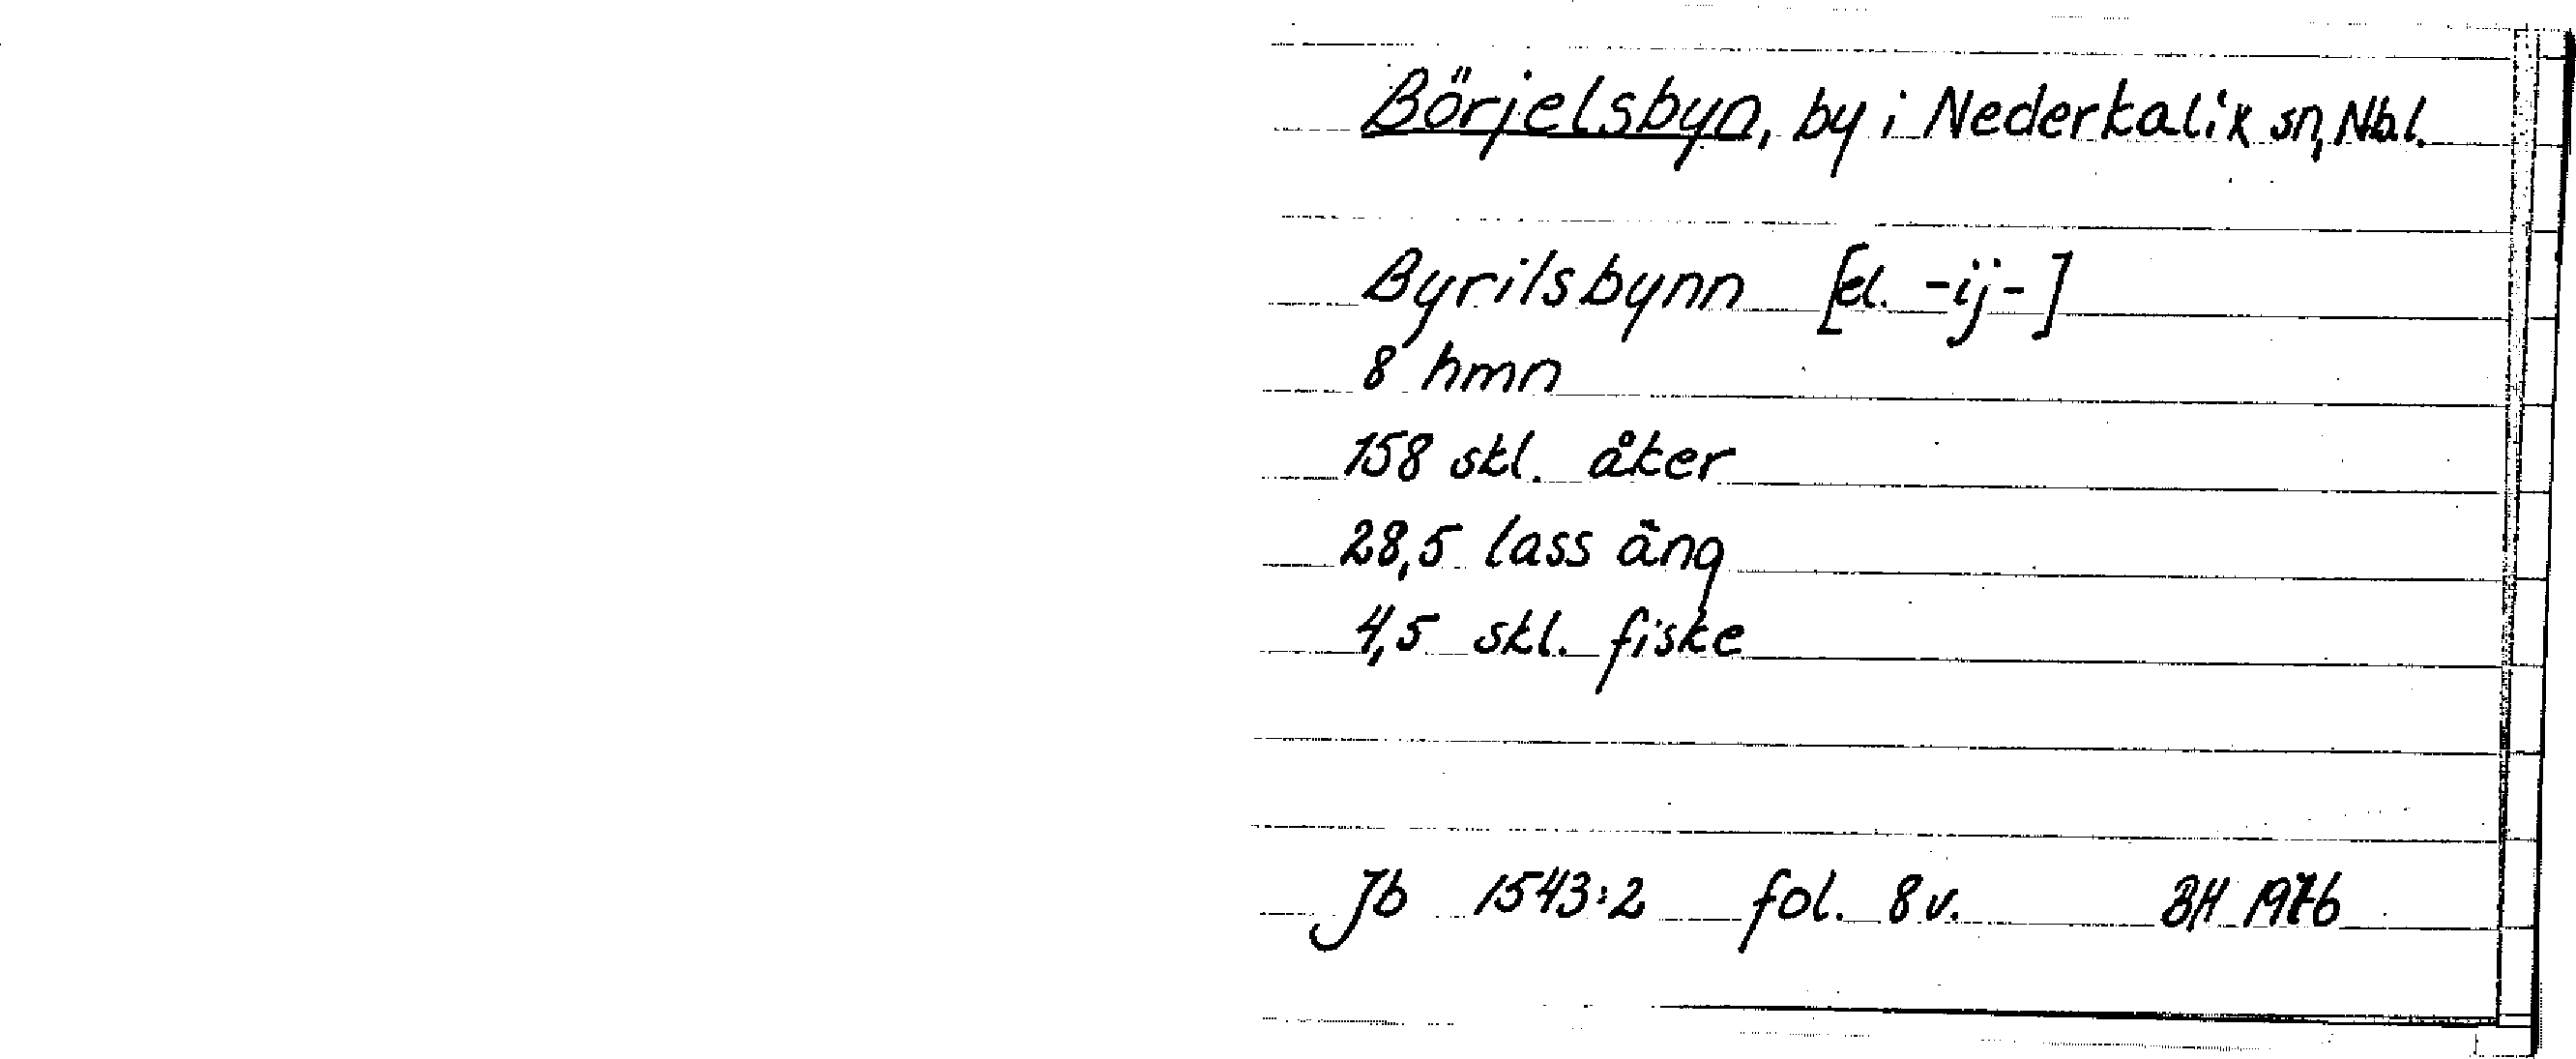 Börjelsbyn, by i Nederkalix sn, Nbl.
Byrilsbynn [el. -ij-]
8 hmn
158 skl. åker
28,5 lass äng
4,5 skl. fiske
Jb 1543:2 fol. 8 v. BH 1976